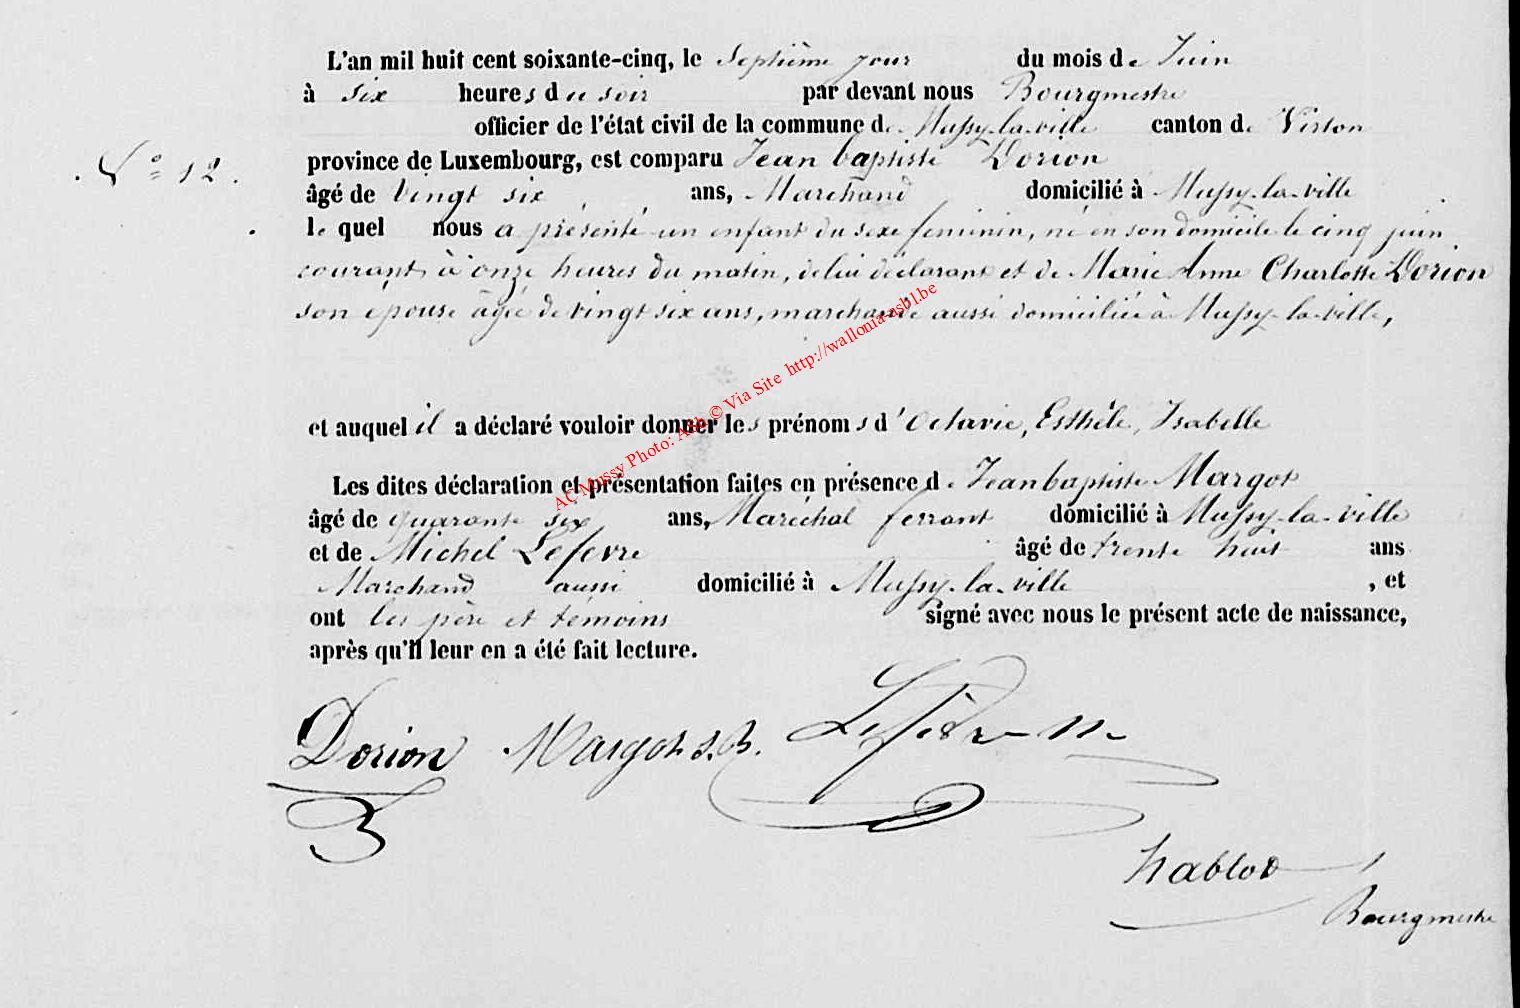 L'an mil huit cent soixante-cinq, le septième jour du mois de Juin
à six heures du soir par devant nous Bourgmestre
officier de l'état civil de la commune de Mussy-la-ville canton de Virton
N° 12.
province de Luxembourg, est comparu Jean baptiste Dorion
âgé de vingt six ans, Marchand domicilié à Mussy-la-ville
le quel nous a présenté un enfant du sexe feminin, né en son domicile le cinq juin
courant à onze heures du matin, de lui déclarant et de Marie Anne Charlotte Dorion
son épouse âgée de vingt six ans, marchande aussi domiciliée à Mussy-la-ville,
et auquel il a déclaré vouloir donner les prénoms d'Octavie, Esthèle, Isabelle
Les dites déclaration et présentation faites en présence de Jean baptiste Margot
âgé de quarante six ans, Maréchal ferrant domicilié à Mussy-la-ville
et de Michel Lefevre âgé de trente huit ans
Marchand aussi domicilié à Mussy-la-ville, et
ont les père et témoins signé avec nous le présent acte de naissance,
après qu'il leur en a été fait lecture.
Dorion Margot J.B. Lefèvre M
hablot
Bourgmestre
AC Mussy Photo: ASh © Via Site http://wallonia-asbl.be